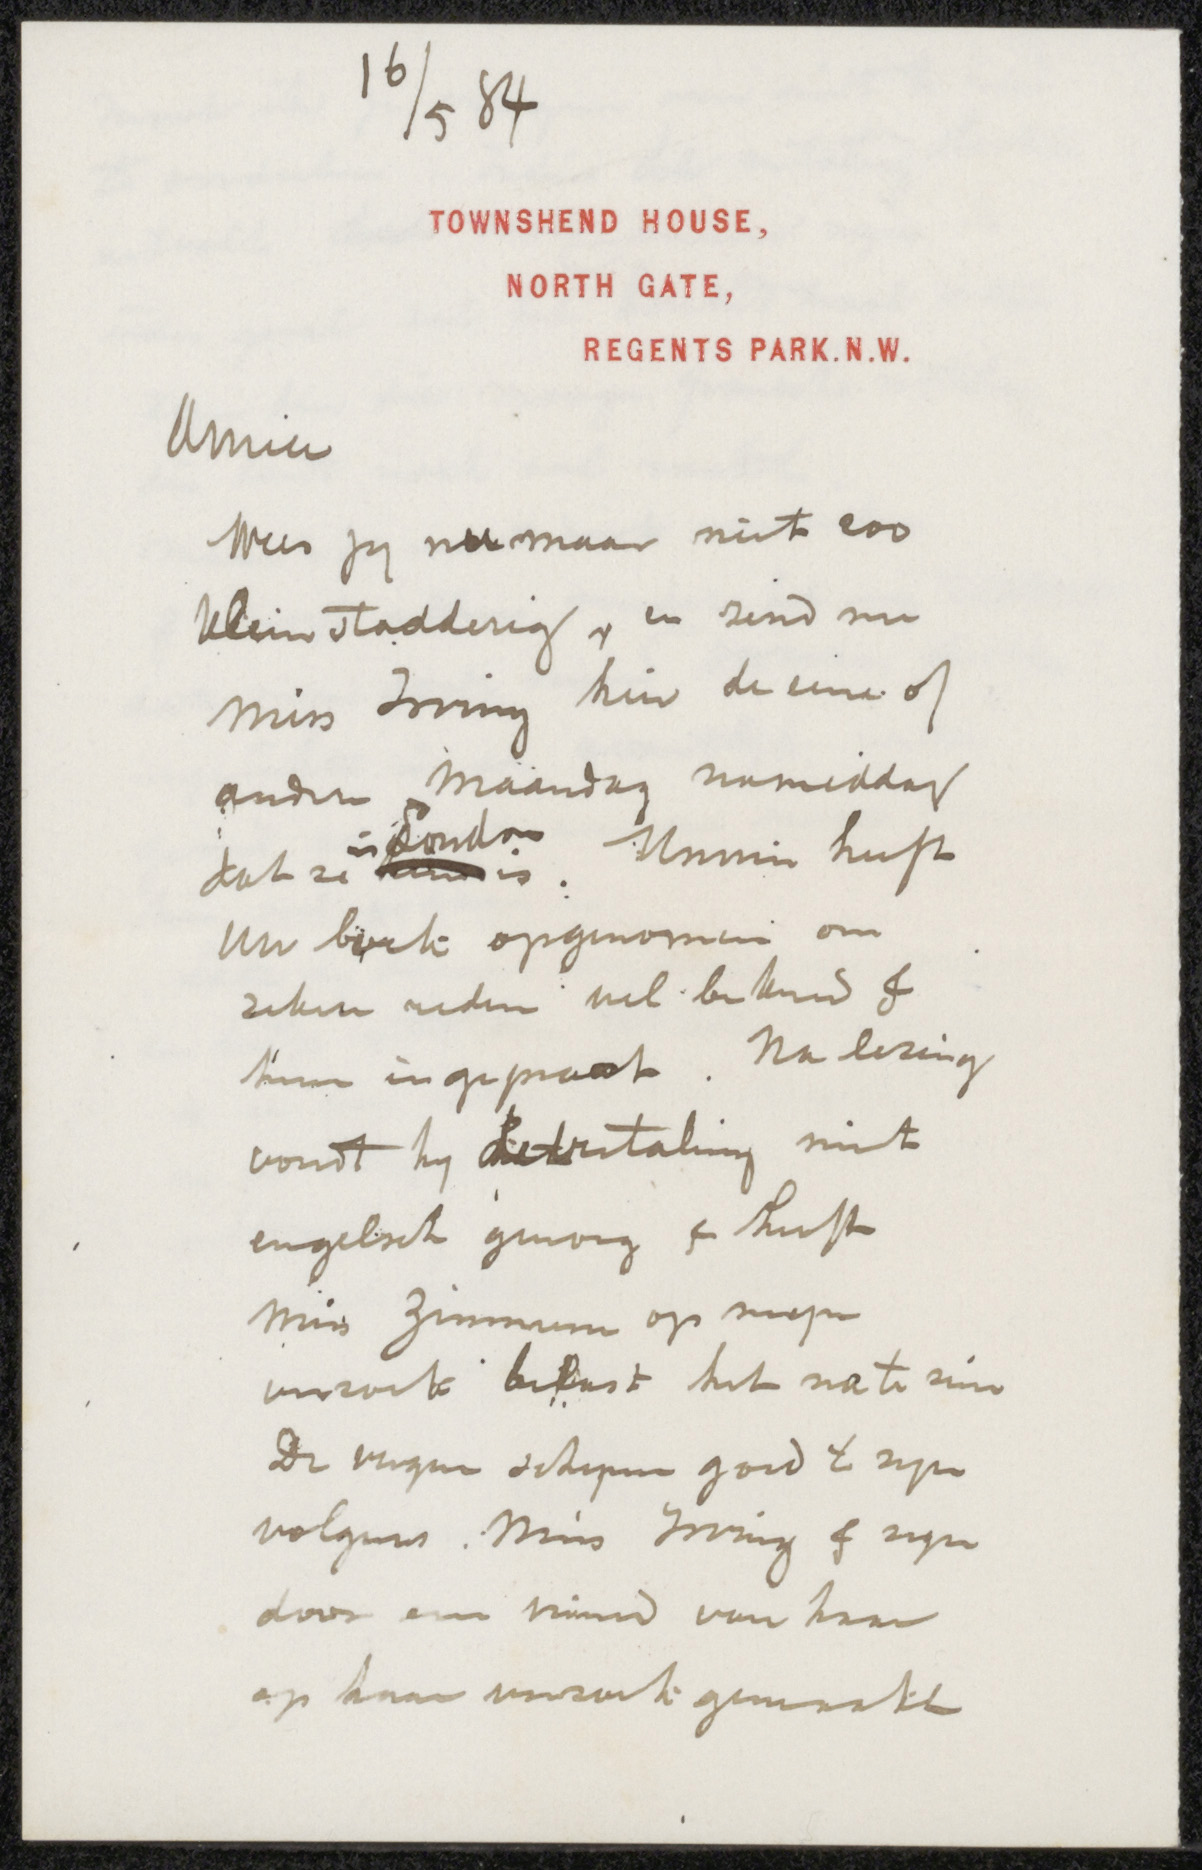 16/5 84
TOWNSHEND HOUSE,
NORTH GATE,
REGENTS PARK.N.W.
Amice
Wees jy nu maar niet zoo
klein stadderig, en zend nu
Miss Irving hier de eene of
andere Maandag namiddag
dat ze in London is. Unwin heeft
Uw boek opgenomen om
zekere reden wel bekend &
hem ingepraat. Na lezing
vondt hy de vertaling niet
engelsch genoeg & heeft
Miss Zimmern op myn
verzoek belast het na te zien
De vrouwen schepen goed & zyn
volgens Miss Irving & zyn
door een vriend van haar
op haar verzoek gemaakt